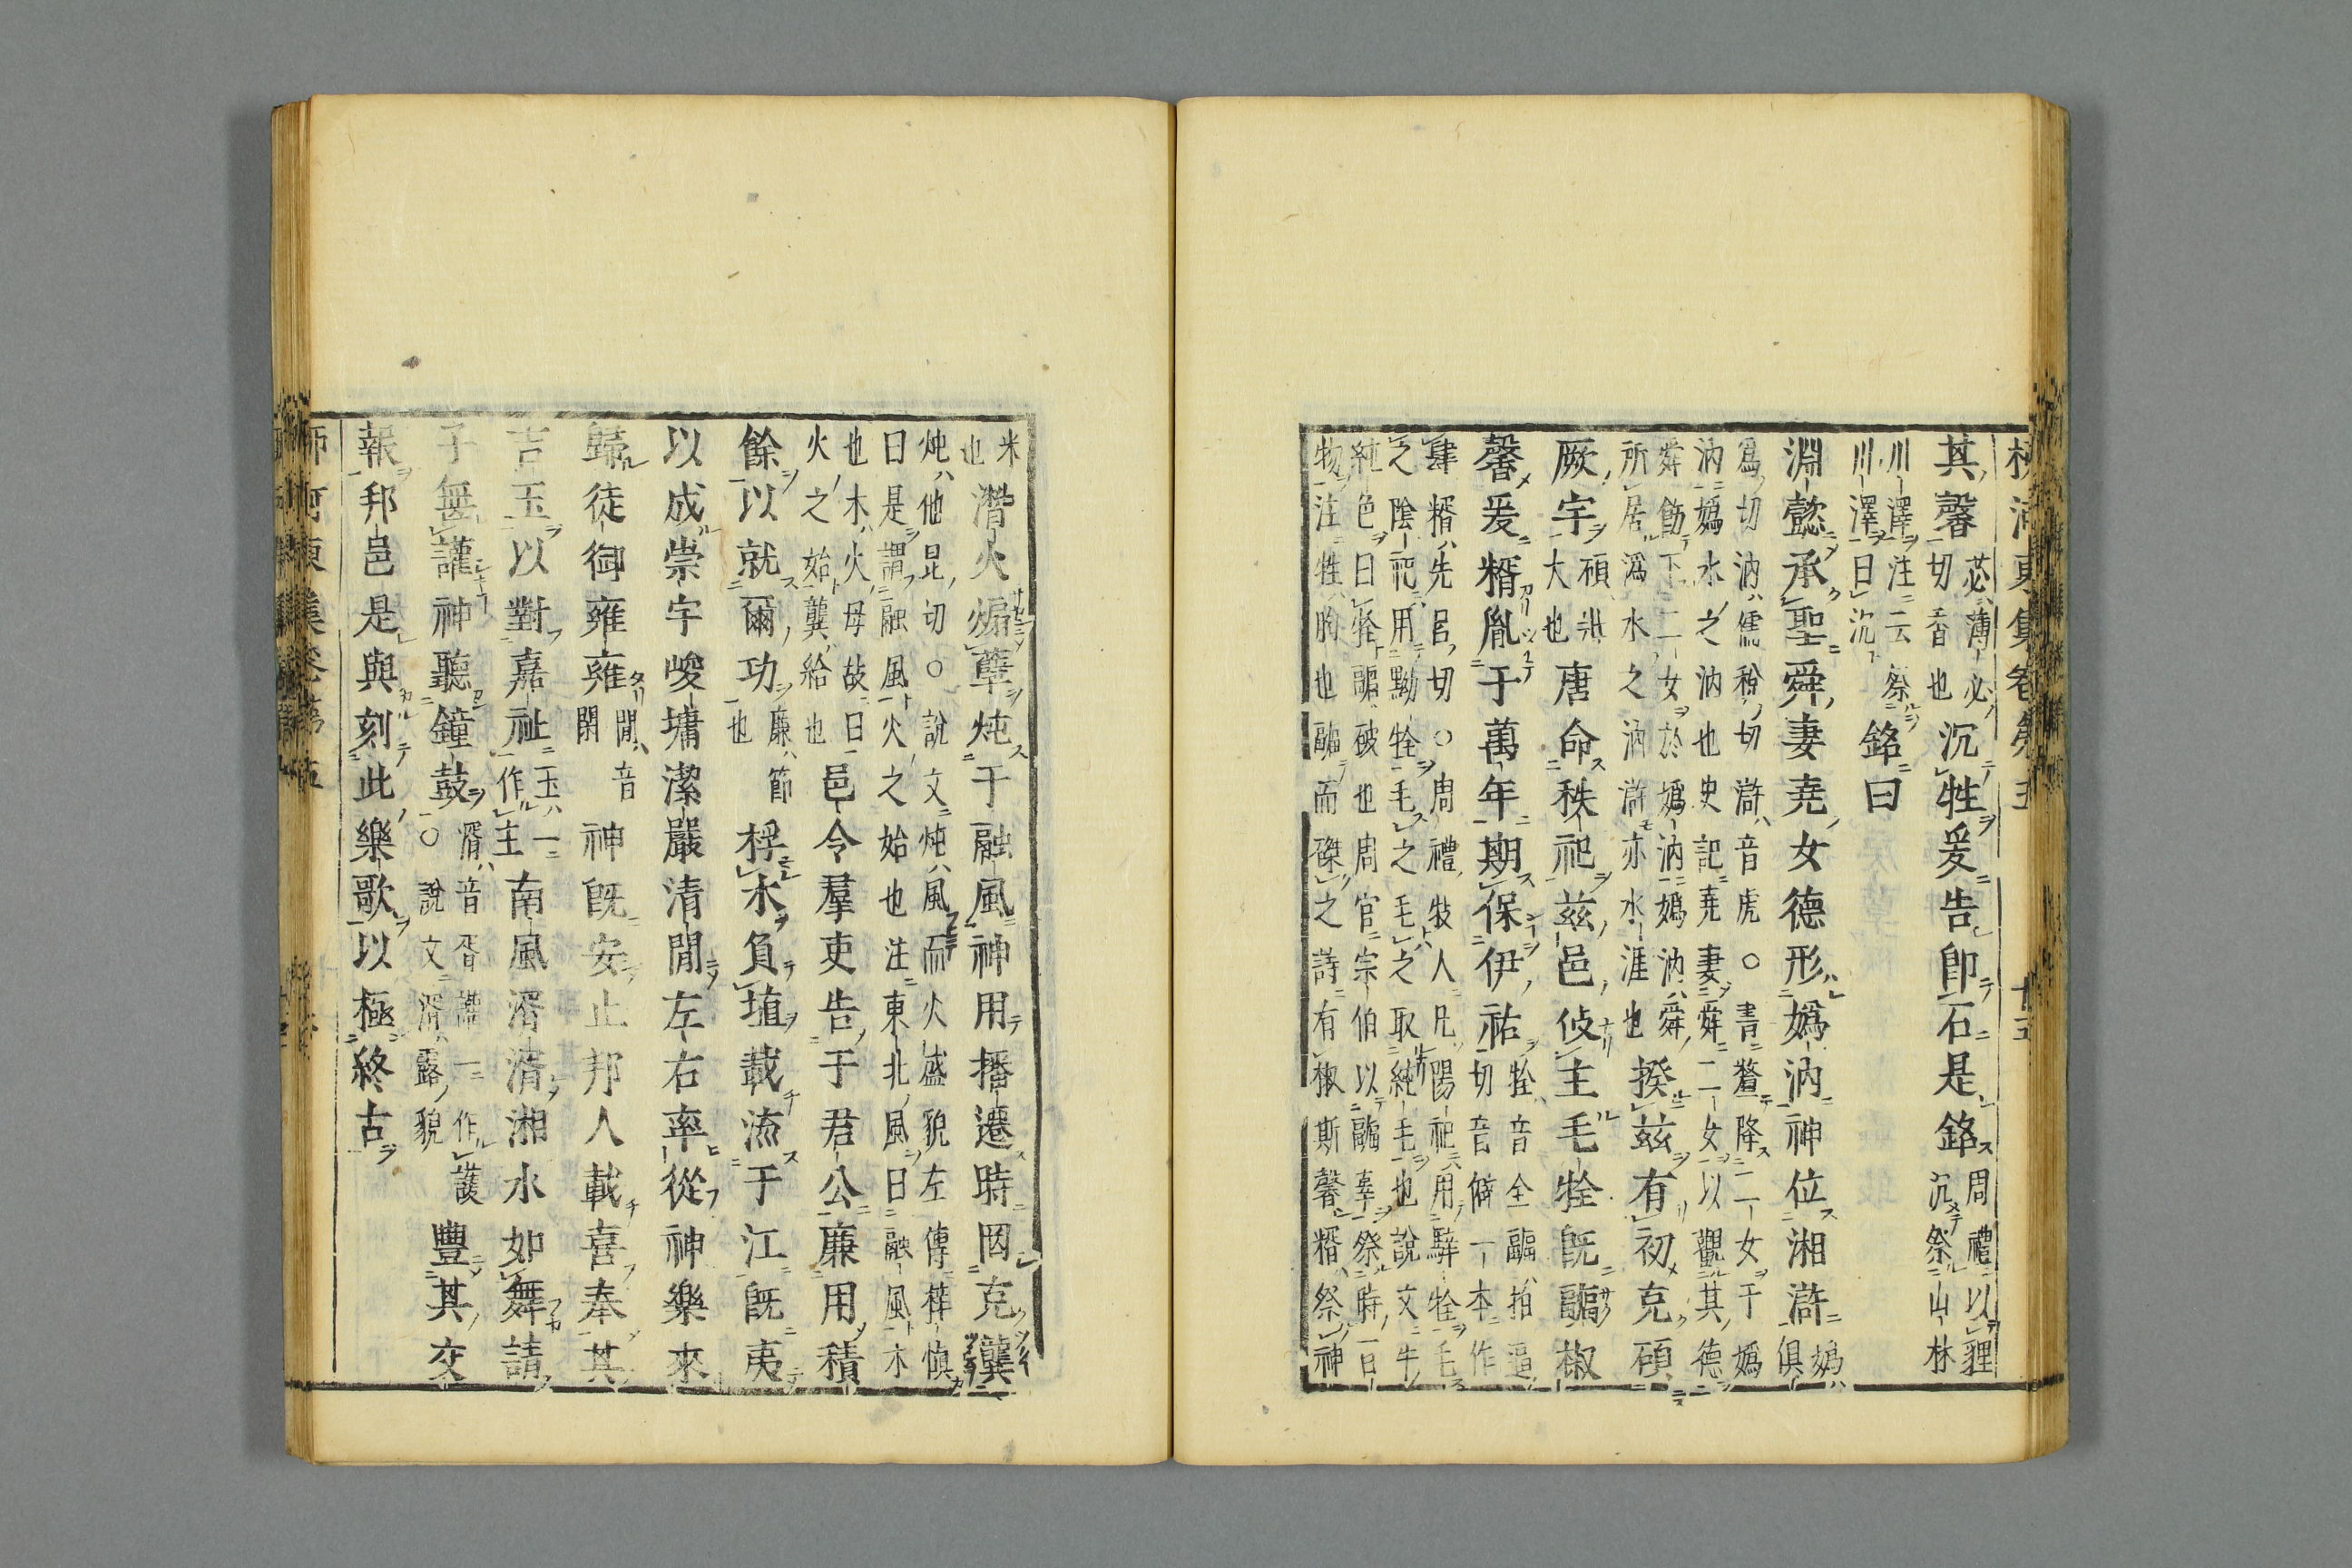 其馨苾薄必切香也沉牲爰告卽石是銘周禮以貍沉祭山林
川澤注云祭川澤曰沉銘曰
淵懿承聖舜妻堯女德形嬀汭神位湘滸嬀俱
爲切汭儒稅切滸音虎○書釐降二女于嬀
汭嬀水之汭也史記堯妻舜二女以觀其德
舜飭下二女於嬀汭嬀汭舜
所居潙水之汭滸亦水涯也揆兹有初克碩
厥宇碩洪大也唐命秩祀兹邑攸主毛牷既疈椒
馨爰糈胤于萬年期保伊祐牷音全疈拍逼切音偪一本作
肆糈先呂切○周禮牧人凡陽祀用騂牷毛
之陰祀用黝牷毛之毛之取純毛也說文牛
純色曰牷疈破也周官宗伯以疈辜祭時一曰
物注牲胸也疈而磔之詩有椒斯馨糈祭神
米也潛火煽孽炖于融風神用播遷時罔克龔
炖他昆切○說文炖風而火盛貌左傳梓愼
曰是謂融風火之始也注東北風曰融風木
也木火母故曰火之始龔給也邑令羣吏告于君公廉用積
餘以就爾功廉節也桴木負埴載流于江既夷
以成崇宇峻墉潔嚴清閒左右率從神樂來
歸徒御雍雍閒音閑神既安止邦人載喜奉其
吉玉以對嘉祉玉一作主南風湑湑湘水如舞請
子無讙神聽鐘鼓湑音胥讙一作護○說文湑露貌豐其交
報邦邑是與刻此樂歌以極終古